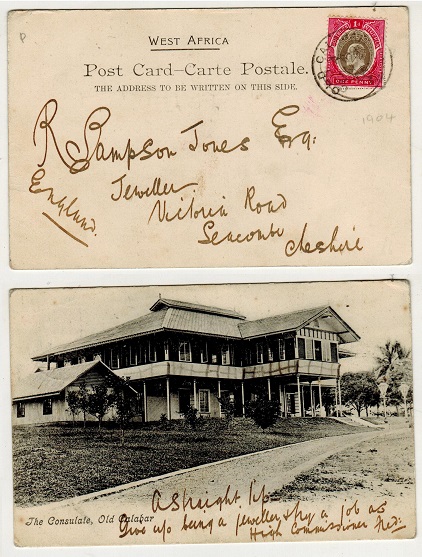 P
WEST AFRICA
Post Card–Carte Postale.
THE ADDRESS TO BE WRITTEN ON THIS SIDE.
1d
ONE PENNY
OLD CALABAR
1904
R Sampson Jones Esq:
Jeweller
Victoria Road
Seacombe
Cheshire
England.
The Consulate, Old Calabar
A straight tip
Give up being a jeweller & try a job as
High Commissioner